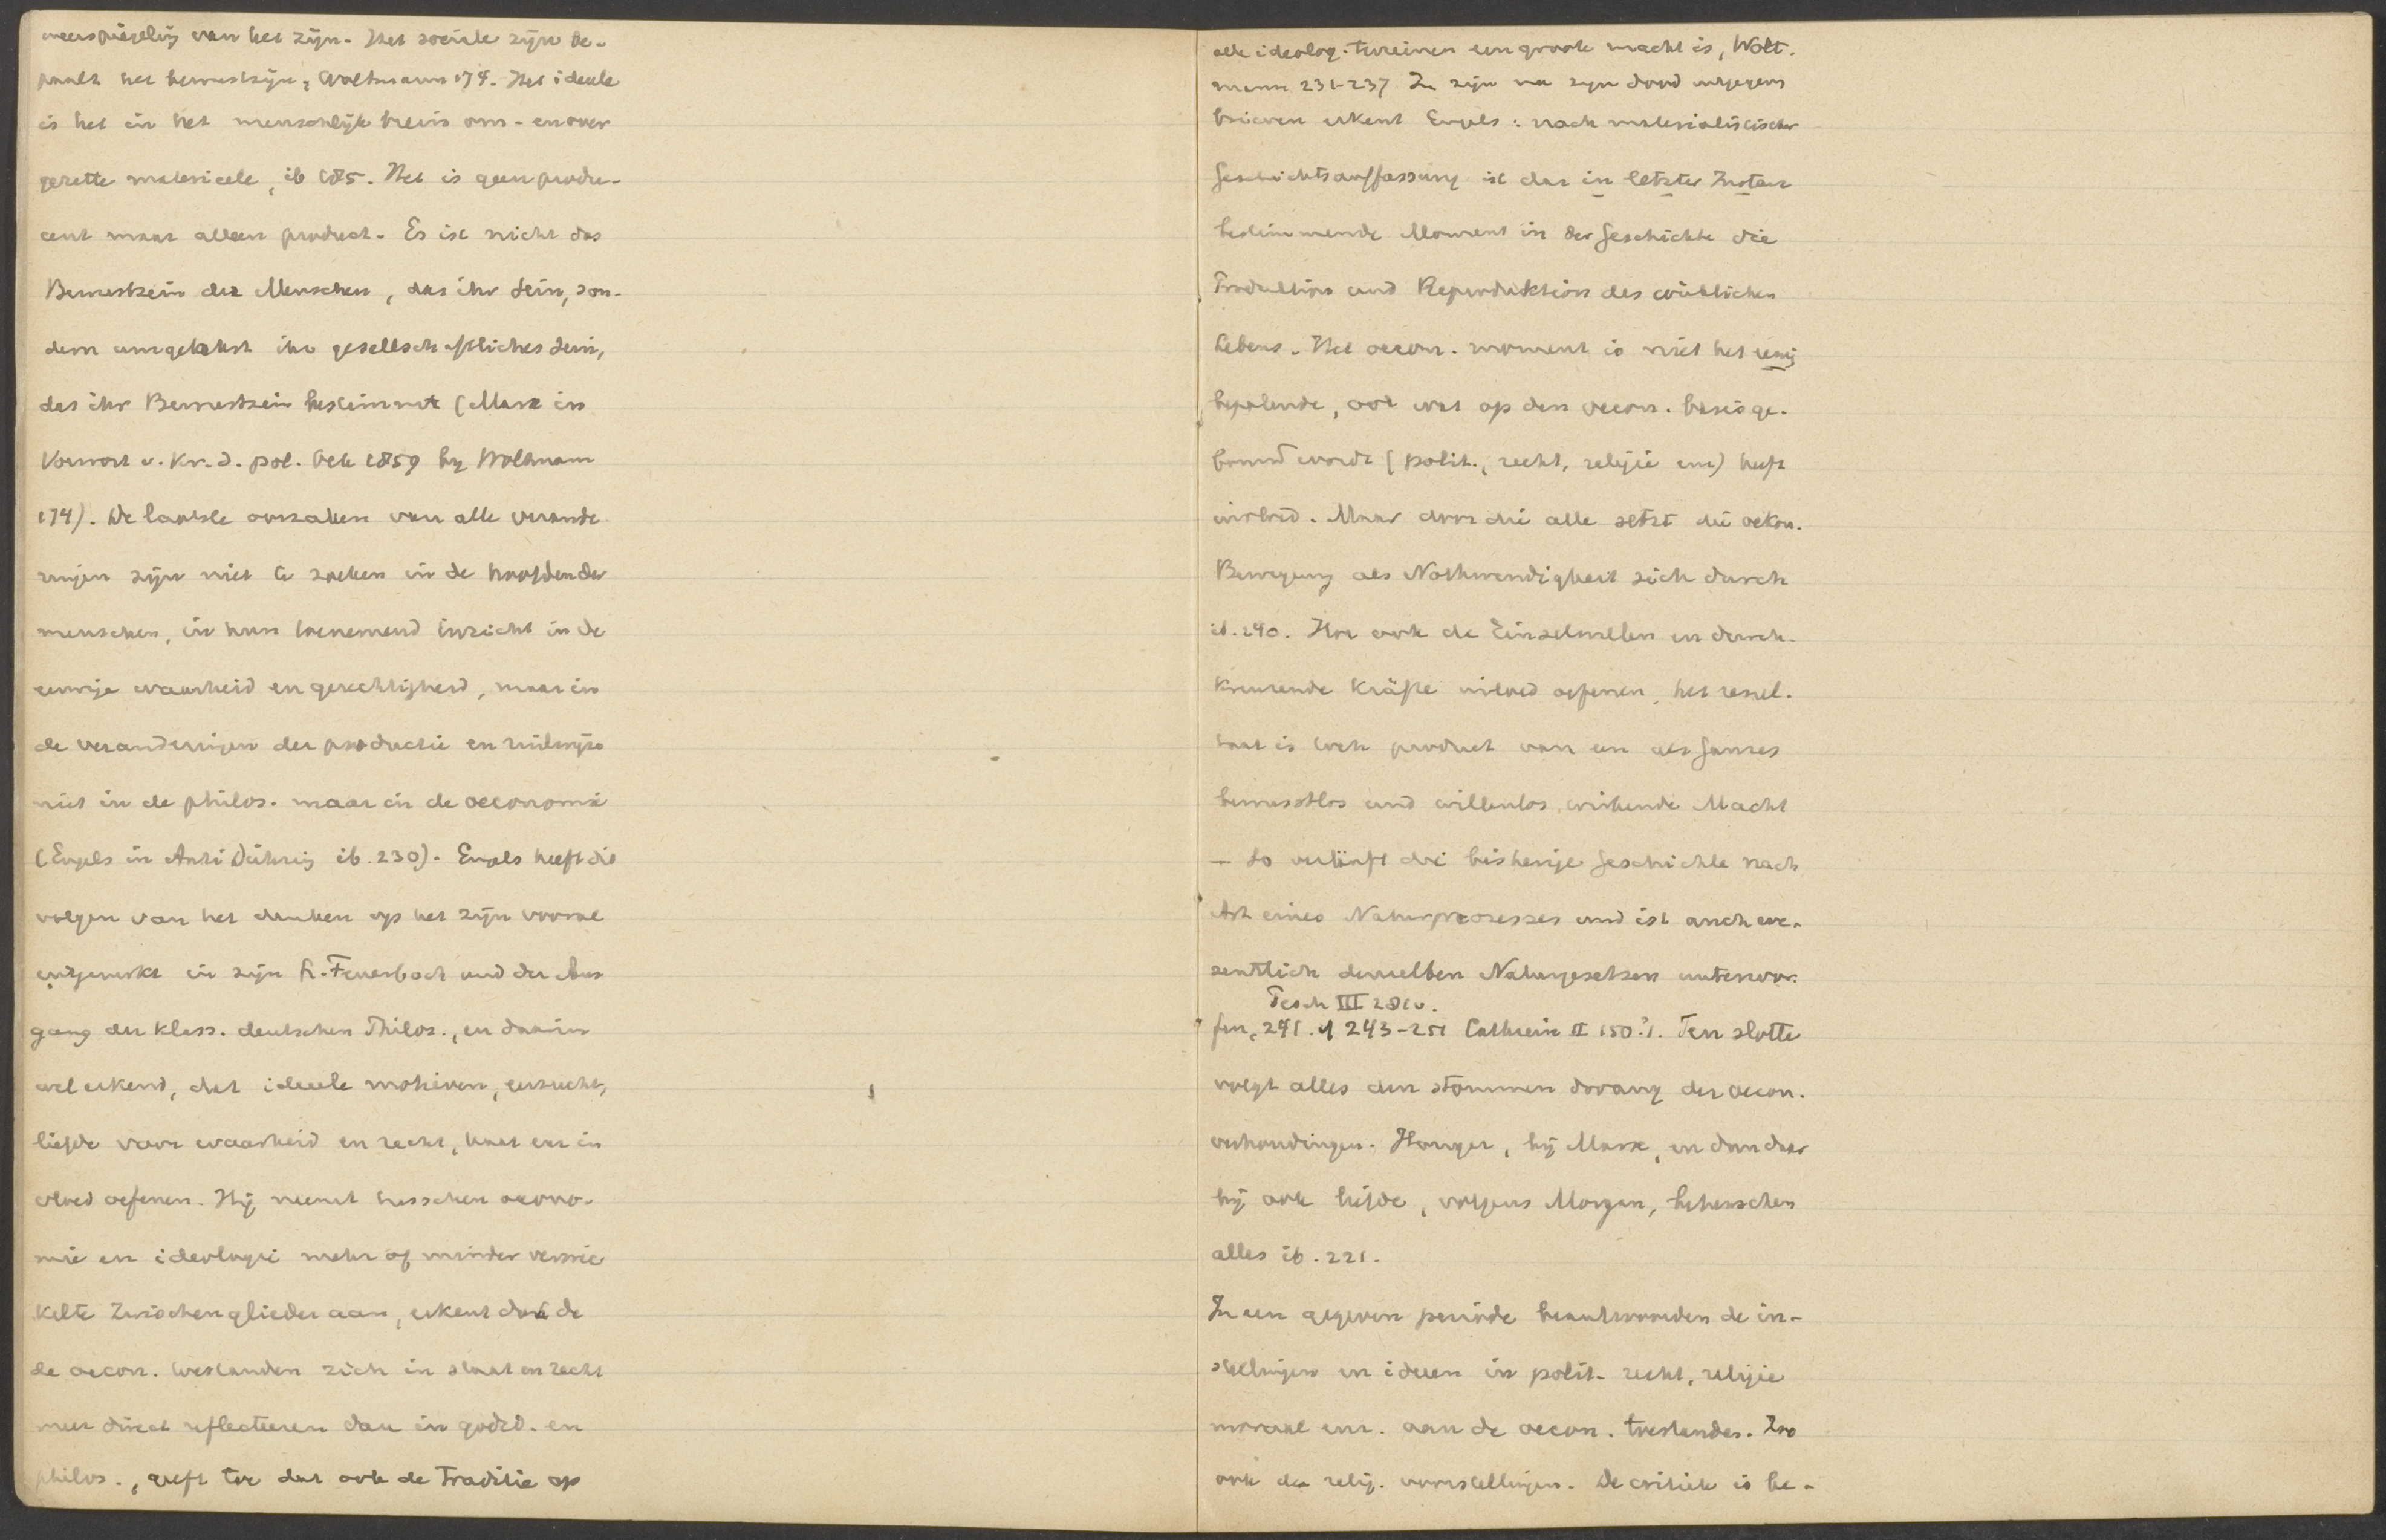 weerspiegeling van het zijn. Het sociale zijn be-
paalt het bewustzijn, Woltmann 174. Het ideale
is het in het menschelijk brein om- en over
gezette materieele, ib 185. Het is geen produ-
cent maar alleen product. Es ist nicht das
Bewustsein der Menschen, das ihr Sein, son-
dern umgekehrt ihr gesellschaftliches Sein,
das ihr Bewustsein bestimmt (Marx in
Vorwort v. Kr. d. pol. Oek 1859 by Woltmann
174). De laatste oorzaken van alle verande
ringen zijn niet te zoeken in de hoofden der
menschen, in hun toenemend inzicht in de
eeuwige waarheid en gerechtigheid, maar in
de veranderingen der productie en ruilwijze
niet in de philos. maar in de oeconomie
(Engels in Anti Dühring ib. 230). Engels heeft dit
volgen van het denken op het zijn vooral
uitgewerkt in zijn L. Feuerbach und der Aus
gang der klass. deutschen Philos., en daarin
wel erkend, dat ideeele motieven, eerzucht,
liefde voor waarheid en recht, haat enz in
vloed oefenen. Hij neemt tusschen oecono-
mie en ideologie mehr of minder verwic
kelte Zwischenglieder aan, erkent dat de
de oecon. toestanden zich in staat en recht
meer direct reflecteeren dan in godsd. en
philos., geeft toe dat ook de traditie op
alle ideolog. terreinen een groote macht is, Wolt.
mann 231-237 In zijn na zijn dood uitgegeven
brieven erkent Engels: nach materialistischer
Geschichtsauffassung ist das in letzter Instanz
bestimmende Moment in der Geschichte die
Produktion und Reproduktion des wirklichen
Lebens. Het oecon. moment is niet het eenig
bepalende, ook wat op den oecon. basis ge-
bouwd wordt (polit., recht, religie enz) heeft
invloed. Maar door die alle setzt die oekon.
Bewegung als Nothwendigkeit sich durch
ib. 240. Hoe ook de Einzelwillen en durch-
kreuzende Kräfte invloed oefenen, het resul-
taat is toch product van een als Ganzes
bewusstlos und willenlos wirkende Macht
- So verläuft die bisherige Geschichte nach
Art eines Naturprozesses und ist auch we-
sentlich denselben Naturgesetzen unterwor-
Pesch III 281v.
fen, 241. cf 243-251 Cathrein II 150?). Ten slotte
volgt alles den stommen dwang der oecon.
verhoudingen. Honger, bij Marx, en dan daar
bij ook liefde, volgens Morgan, beheerschen
alles ib. 221.
In een gegeven periode beantwoorden de in-
stellingen en ideeen in polit. recht, religie
moraal enz. aan de oecon. toestanden. Zoo
ook de relig. voorstellingen. De critiek is be-